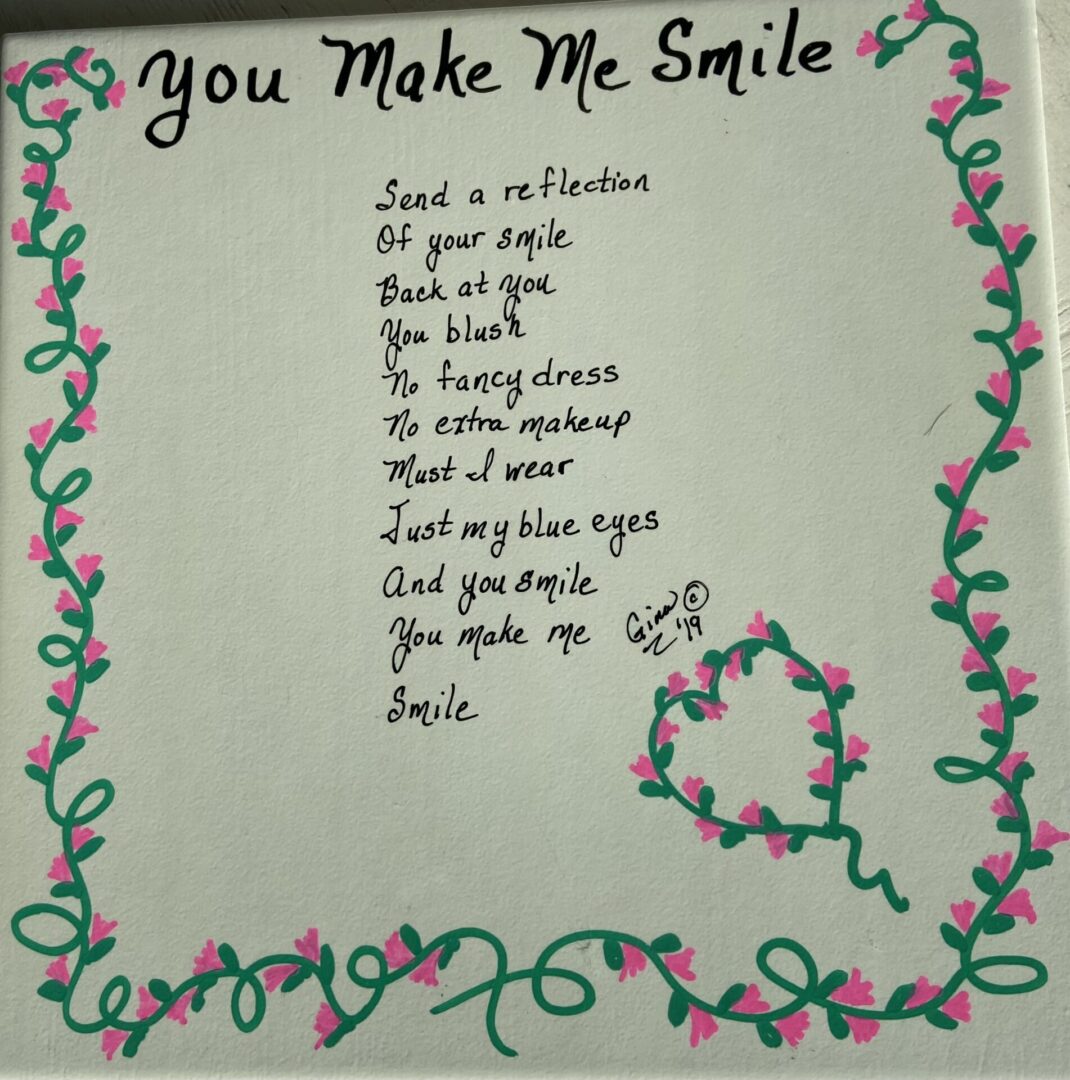 You Make Me Smile
Send a reflection
Of your smile
Back at you
You blush
No fancy dress
No extra makeup
Must I wear
Just my blue eyes
And you smile
You make me
Smile
Gina ©
'19